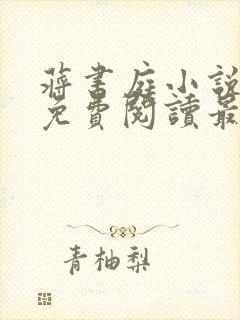 蔣書庭小說
免費閱讀最
青柚梨